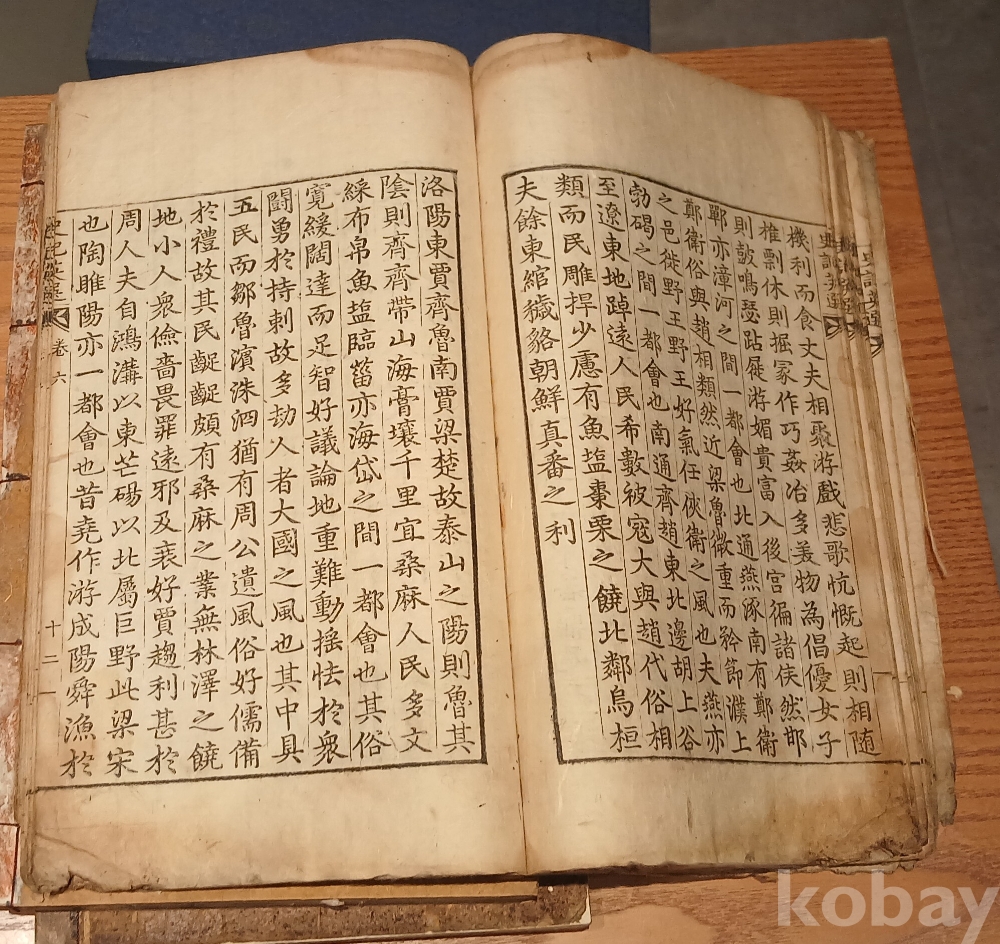 機利而食丈夫相聚游戲悲歌忼慨起則相隨
椎剽休則掘冢作巧姦冶多美物為倡優女子
則鼓鳴瑟跕屣游媚貴富入後宮徧諸侯然邯
鄲亦漳河之間一都會也北通燕涿南有鄭衛
鄭衛俗與趙相類然近梁魯微重而矜節濮上
之邑徙野王野王好氣任俠衛之風也夫燕亦
勃碣之間一都會也南通齊趙東北邊胡上谷
至遼東地踔遠人民希數被寇大與趙代俗相
類而民雕捍少慮有魚塩棗栗之饒北鄰烏桓
夫餘東綰穢貉朝鮮真番之利
洛陽東賈齊魯南賈梁楚故泰山之陽則魯其
陰則齊齊帶山海膏壤千里宜桑麻人民多文
綵布帛魚塩臨菑亦海岱之間一都會也其俗
寬緩闊達而足智好議論地重難動搖怯於衆
鬪勇於持刺故多劫人者大國之風也其中具
五民而鄒魯濱洙泗猶有周公遺風俗好儒備
於禮故其民齪齪頗有桑麻之業無林澤之饒
地小人衆儉嗇畏罪遠邪及衰好賈趨利甚於
周人夫自鴻溝以東芒碭以北屬巨野此梁宋
也陶睢陽亦一都會也昔堯作游成陽舜漁於
史記英選 卷六 十三
史記英選
kobay